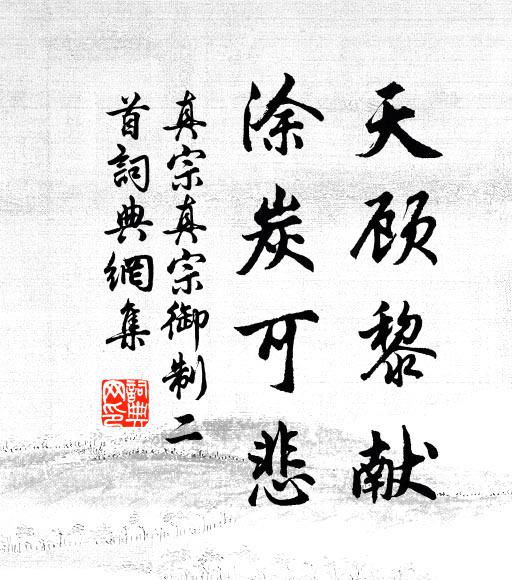 天顾黎献
涂炭可悲
真宗真宗御制二
首詞典網集
詞典
网印